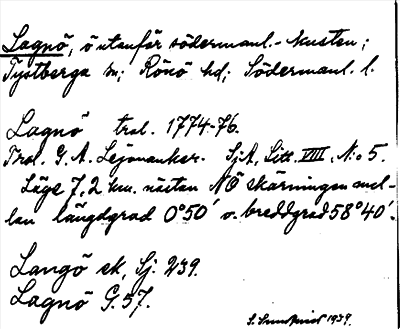 Lagnö, ö utanför södermanl.-kusten;
Tystberga sn; Rönö hd; Södermanl. l.
Lagnö trol. 1774-76.
Trol. G. A. Lejonanker. SjA, Litt. VIII, N:o 5.
Läge 7,2 km. nästan NÖ skärningen mel-
lan längdgrad 0°50' o. breddgrad 58°40'.
Langö sk, Sj. 239.
Lagnö G. 57.
S. Sundqvist 1939.